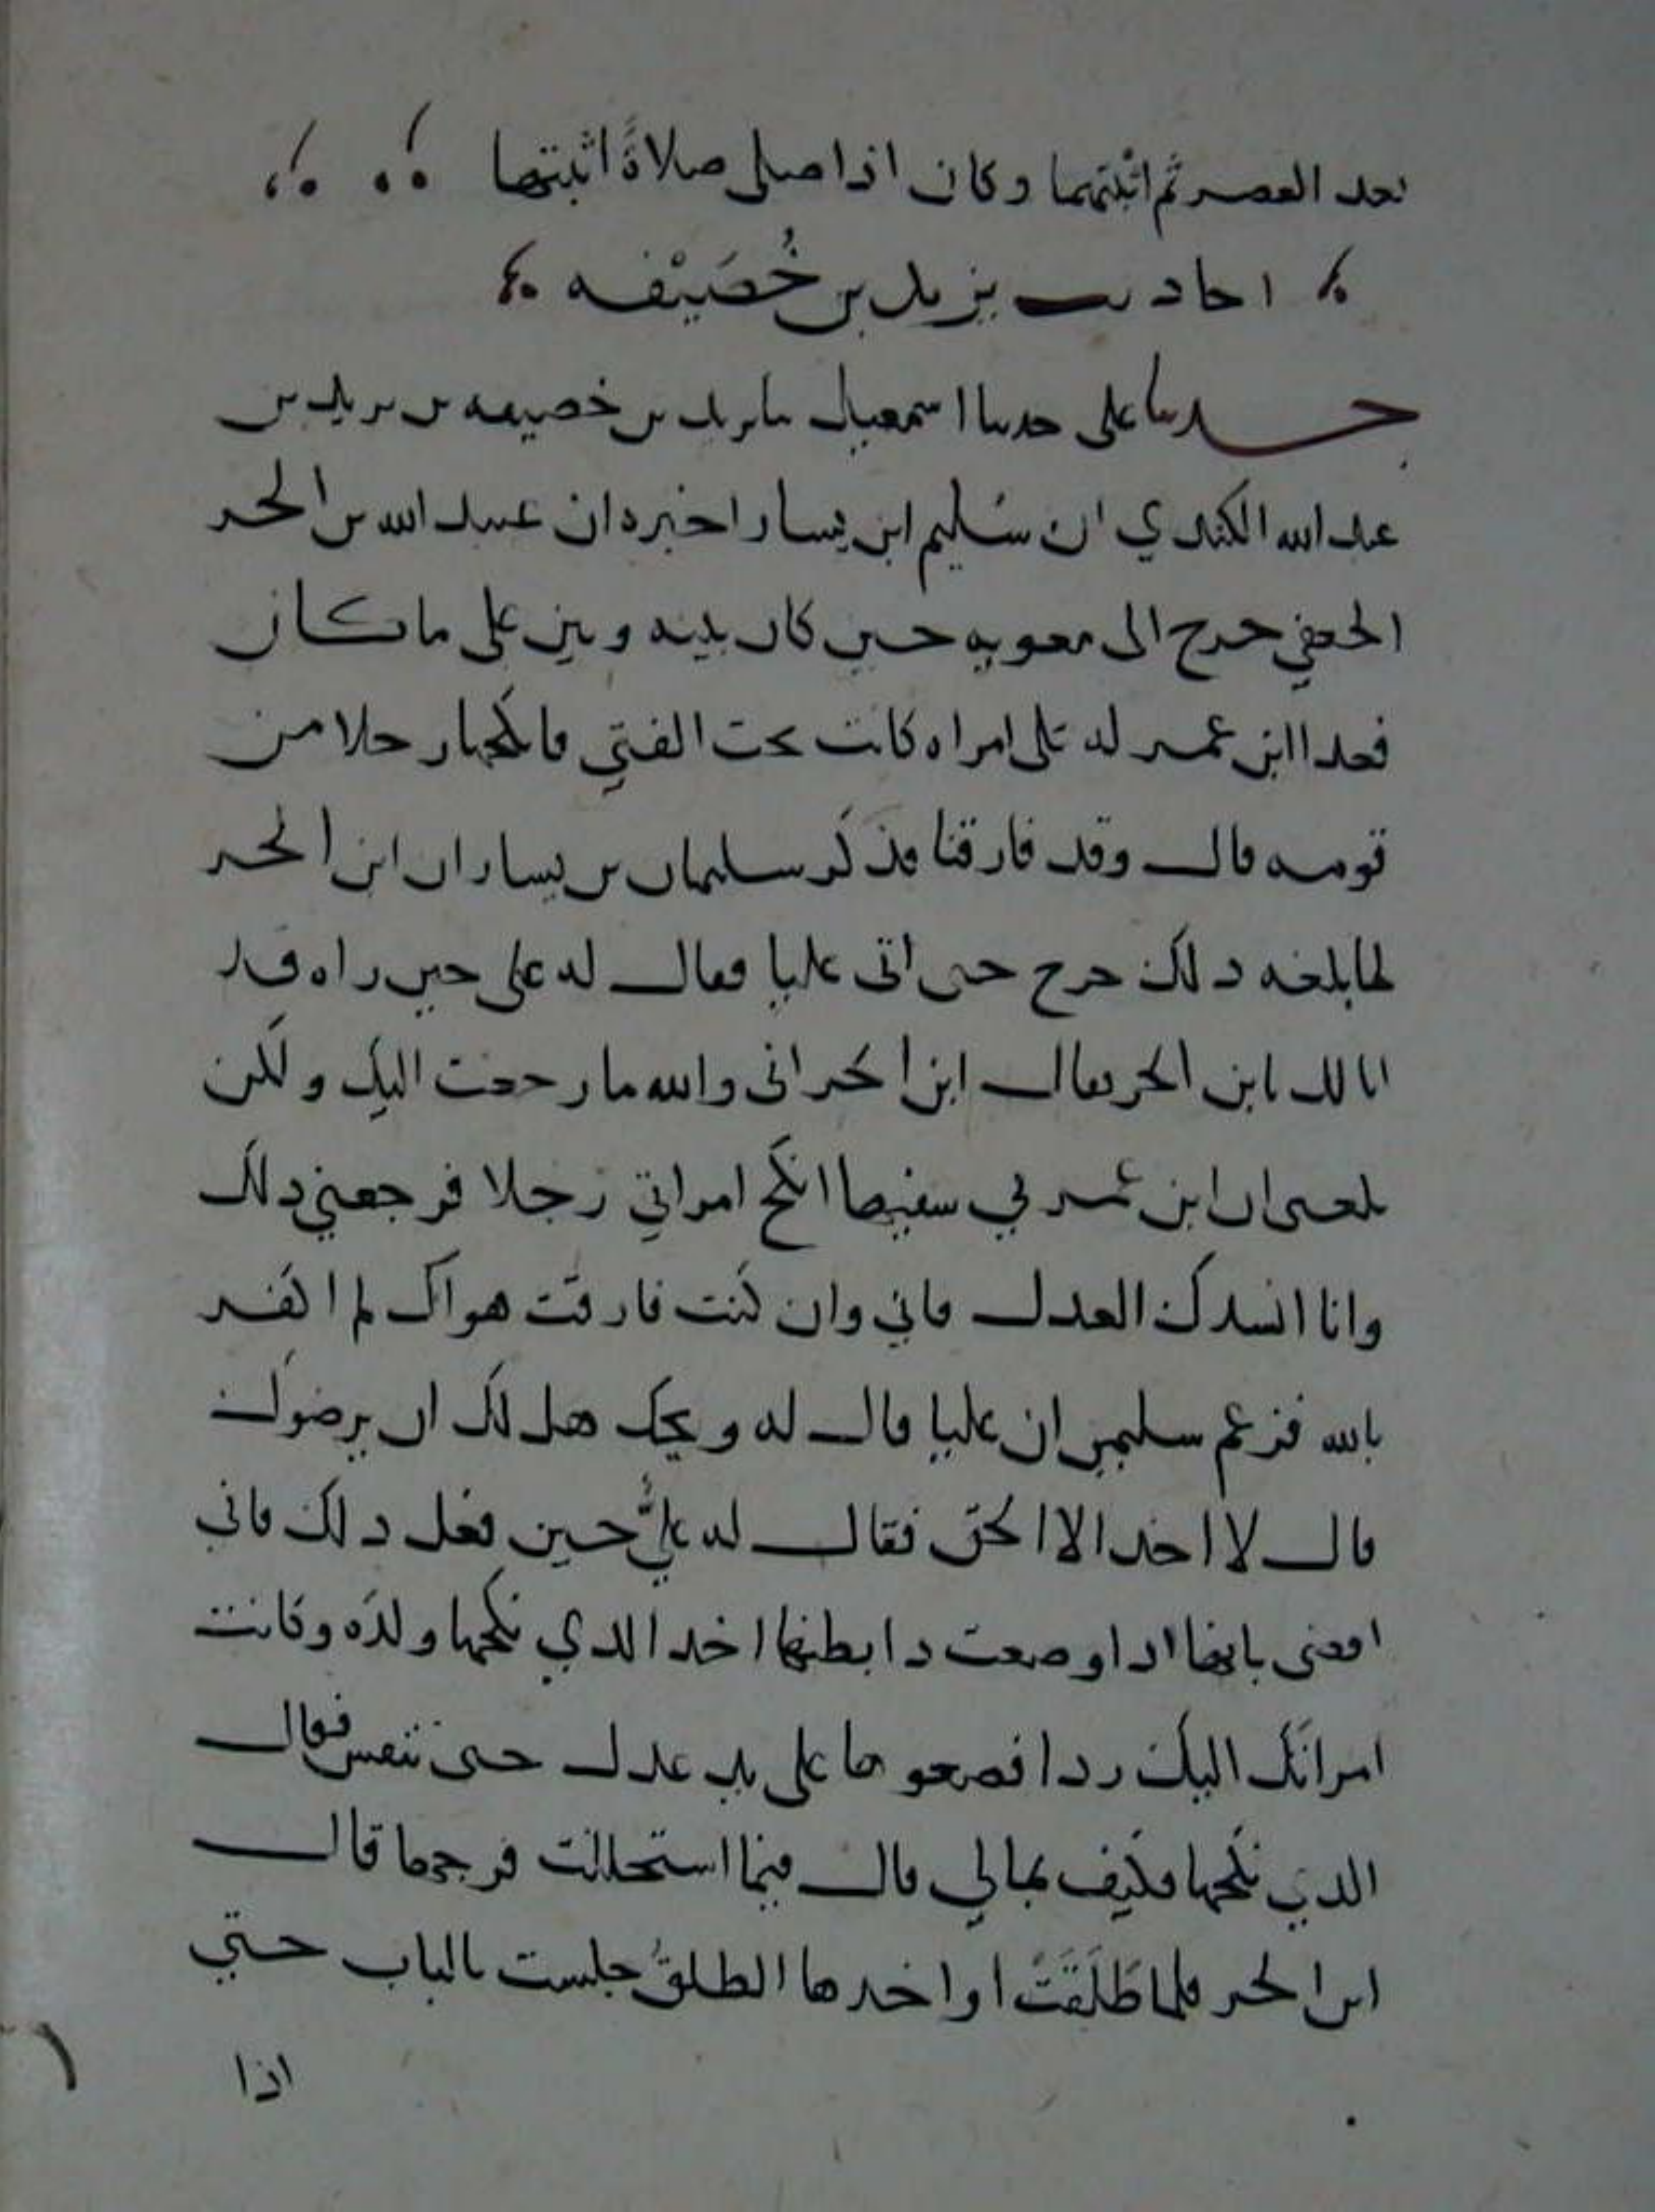 بعد العصر ثم اثبتهما وكان اذا صلى صلاةً اثبتها
احاديث يزيد بن خُصَيْفه
حدثنا على حدثنا اسمعيل نا يزيد بن خصيفه بن يزيد بن
عبد الله الكندي ان سُليم ابن يسار اخبره ان عبيد الله بن الحر
الجعفي خرج الى معويه حين كان بينه وبين على ما كان
فعدا ابن عمر له على امراه كانت تحت الفتي فانكحها رجلا من
قومه قال وقد فارقنا فذكر سليمان بن يسار ان ابن الحر
لما بلغه ذلك خرج حتى اتى عليا فقال له على حين راه قد
انا لك يابن الحر فقال ابن الحر اني والله ما رجعت اليك ولكن
بلغني ان ابن عمر لي سفيها انكح امراتي رجلا فرجعني ذلك
وانا انشدك العدل فاني وان كنت فارقت هواك لم اكفر
بالله فزعم سليمن ان عليا قال له ويحك هل لك ان يرضوك
قال لا اخذ الا الحق فقال له عليٌّ حين فعل ذلك فاني
اقضى بانها اذا وضعت ذا بطنها اخذ الذي نكحها ولده وكانت
امراتك اليك ردا فضعوها على يد عدل حتى تنفس فقال
الذي نكحها فكيف بمالي قال فبما استحللت فرجها قال
ابن الحر فلما طَلَقَتْ او اخذها الطلقُ جلست بالباب حتي
اذا